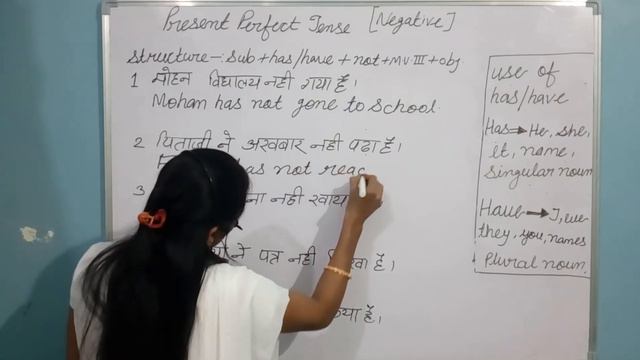 Present Perfect Tense [Negative]
Structure-: Sub + has/have + not + MV III + obj
1 मोहन विद्यालय नही गया हैं।
Mohan has not gone to school.
2 पिताजी ने अखबार नही पढ़ा हैं।
has not rea
3 नही खाय
ने पत्र नही हैं।
हैं।
use of
has/have
Has → He, she,
it, name,
singular noun
Have → I, we
they, you, names
Plural noun.